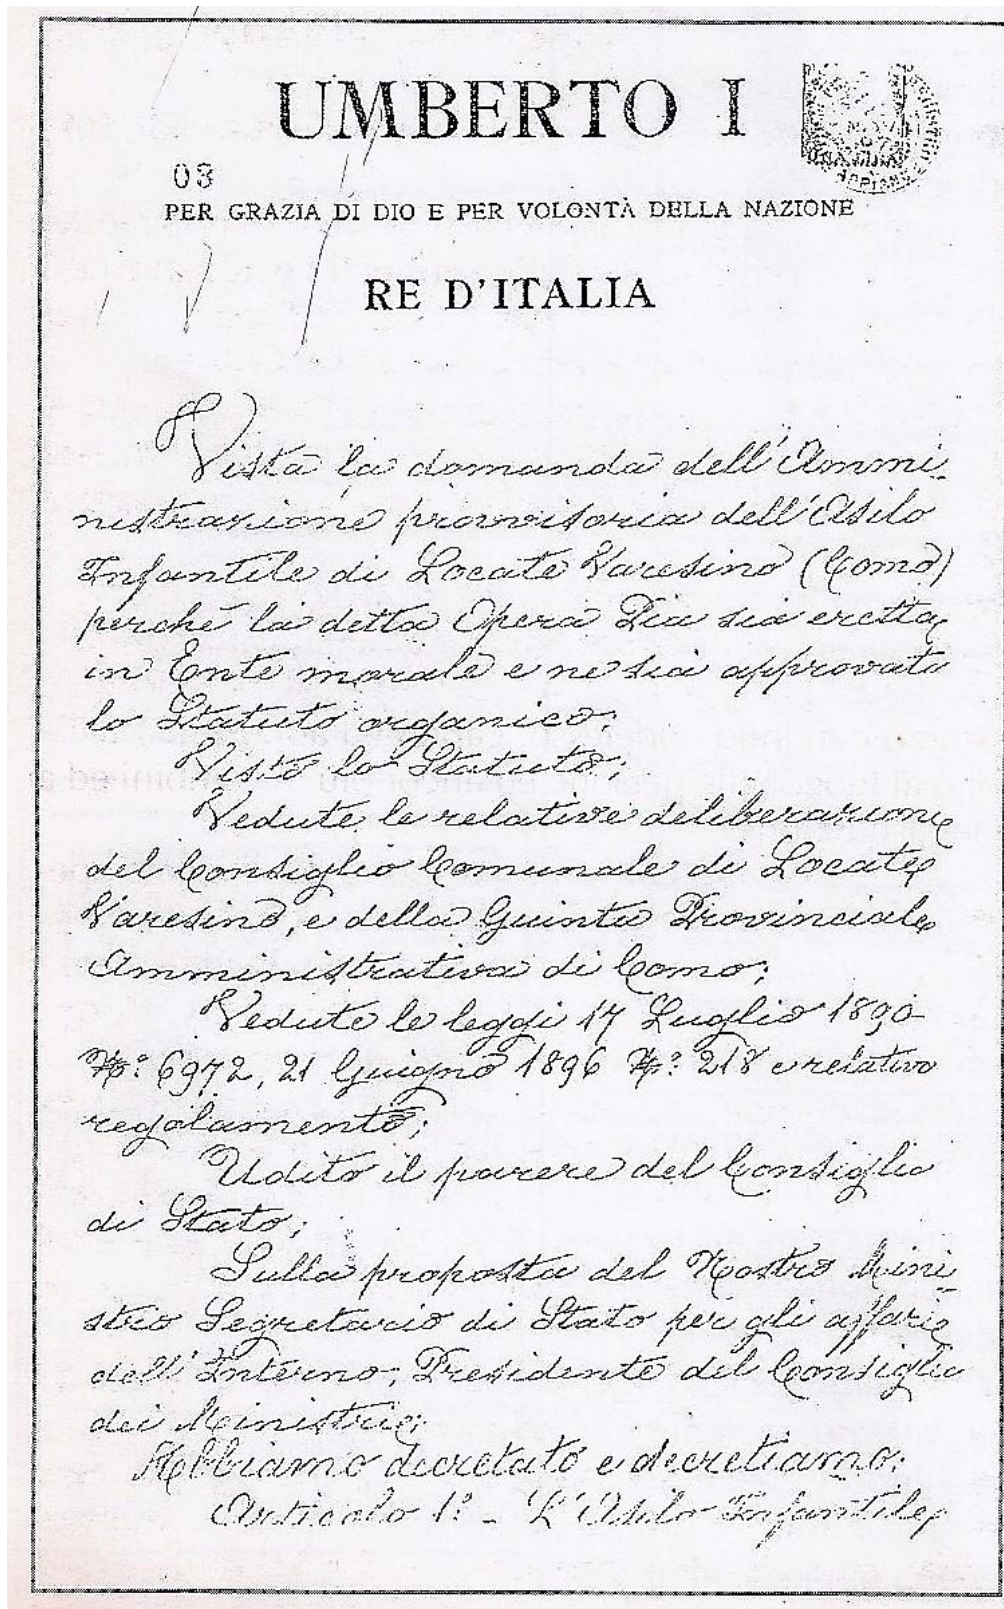 UMBERTO I
03
PER GRAZIA DI DIO E PER VOLONTÀ DELLA NAZIONE
RE D'ITALIA
Vista la domanda dell'Ammi-
nistrazione provvisoria dell'Asilo
Infantile di Locate Varesino (Como)
perchè la detta Opera Pia sia eretta
in Ente morale e ne sia approvato
lo Statuto organico;
Visto lo Statuto;
Vedute le relative deliberazioni
del Consiglio Comunale di Locate
Varesino, e della Giunta Provinciale
Amministrativa di Como;
Vedute le leggi 17 Luglio 1890
No: 6972, 21 Giugno 1896 No: 218 e relativo
regolamento;
Udito il parere del Consiglio
di Stato;
Sulla proposta del Nostro Mini-
stro Segretario di Stato per gli affari
dell'Interno, Presidente del Consiglio
dei Ministri;
Abbiamo decretato e decretiamo:
Articolo 1º - L'Asilo Infantile